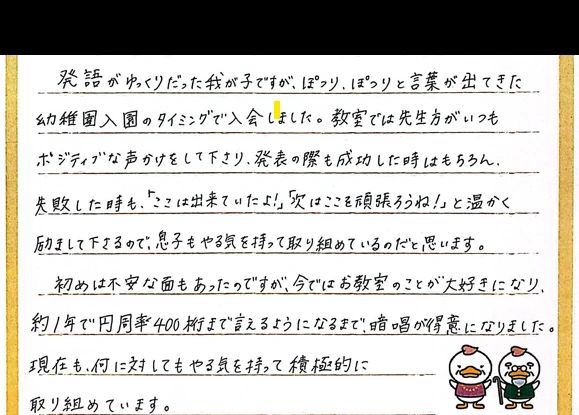 発語がゆっくりだった我が子ですが、ぽつり、ぽつりと言葉が出てきた
幼稚園入園のタイミングで入会しました。教室では先生方がいつも
ポジティブな声かけをして下さり、発表の際も成功した時はもちろん、
失敗した時も、「ここは出来ていたよ!」「次はここを頑張ろうね!」と温かく
励まして下さるので、息子もやる気を持って取り組めているのだと思います。
初めは不安な面もあったのですが、今ではお教室のことが大好きになり、
約1年で円周率400桁まで言えるようになるまで、暗唱が得意になりました。
現在も、何に対してもやる気を持って積極的に
取り組めています。